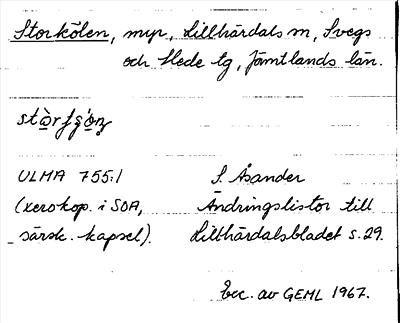 Storkölen, myr, Lillhärdals sn, Svegs
och Hede tg, Jämtlands län.
ULMA 755:1 S. Åsander
(xerokop. i SOA, Ändringslistor till
särsk. kapsel). Lillhärdalsbladet s. 29.
Exc. av GEML 1967.